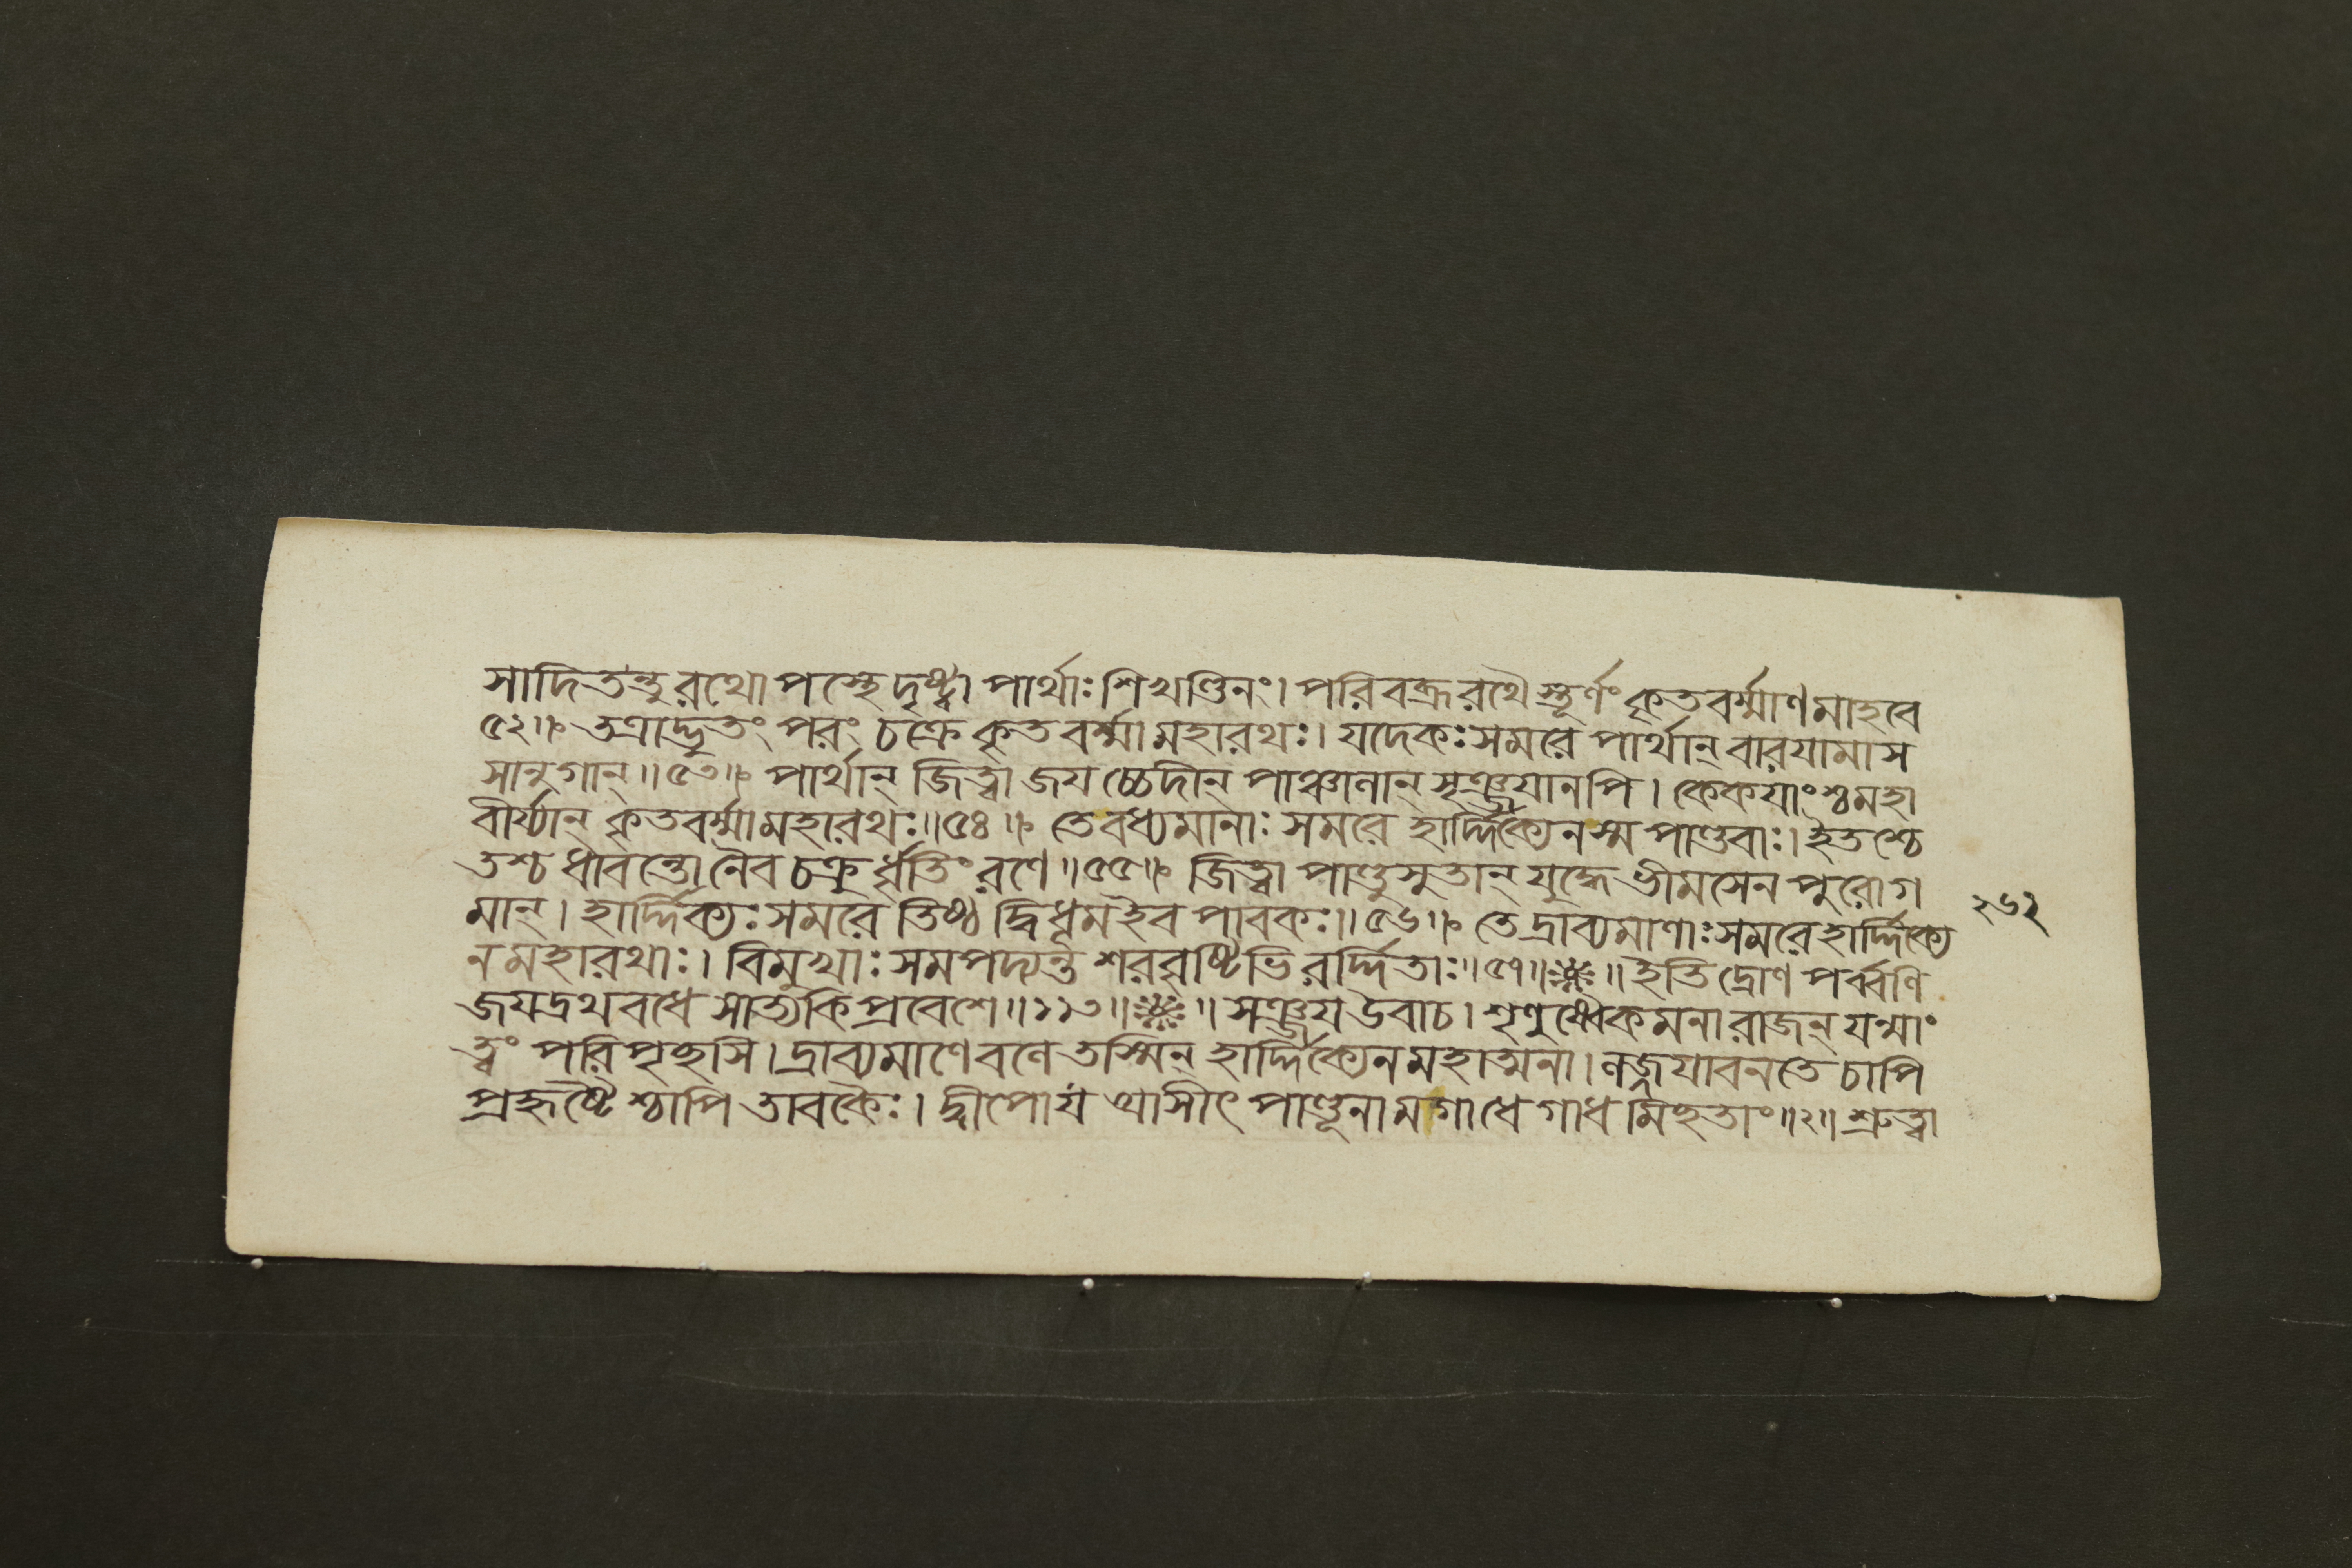 সাদিতন্তু রথোপস্থে দৃষ্ট্বা পার্থাঃ শিখণ্ডিনং। পরিবব্রূ রথৈস্তূর্ণং কৃতবর্ম্মাণমাহবে
৫২॥ তত্রাদ্ভুতং পরং চক্রে কৃতবর্ম্মা মহারথঃ। যদেকঃ সমরে পার্থান্ বারযামাস
সানুগান্॥৫৩॥ পার্থান্ জিত্বা জযচ্চেদীন্ পাঞ্চালান্ সৃঞ্জযানপি। কেকযাংশ্চ মহা
বীর্য্যান্ কৃতবর্ম্মা মহারথঃ॥৫৪॥ তে বধ্যমানাঃ সমরে হার্দ্দিক্যেন স্ম পাণ্ডবাঃ। ইতশ্চে
তশ্চ ধাবন্তো নৈব চক্রুর্ধৃতিং রণে॥৫৫॥ জিত্বা পাণ্ডুসুতান্ যুদ্ধে ভীমসেনপুরোগ
মান্। হার্দ্দিক্যঃ সমরে তিষ্ঠদ্বিধূম ইব পাবকঃ॥৫৬॥ তে দ্রাব্যমাণাঃ সমরে হার্দ্দিক্যে
২৬২
ন মহারথাঃ। বিমুখাঃ সমপদ্যন্ত শরবৃষ্টিভিরর্দ্দিতাঃ॥৫৭॥ ॥ ইতি দ্রোণপর্ব্বণি
জযদ্রথবধে সাত্যকিপ্রবেশে॥১১৩॥ ॥ সঞ্জয উবাচ। শৃণুষ্বৈকমনা রাজন্ যন্মাং
ত্বং পরিপৃচ্ছসি। দ্রাব্যমাণে বলে তস্মিন্ হার্দ্দিক্যেন মহাত্মনা। লজ্জযাবনতে চাপি
প্রহৃষ্টৈশ্চাপি তাবকৈঃ। দ্বীপো য আসীৎ পাণ্ডূনামগাধে গাধমিচ্ছতাং॥২॥ শ্রুত্বা